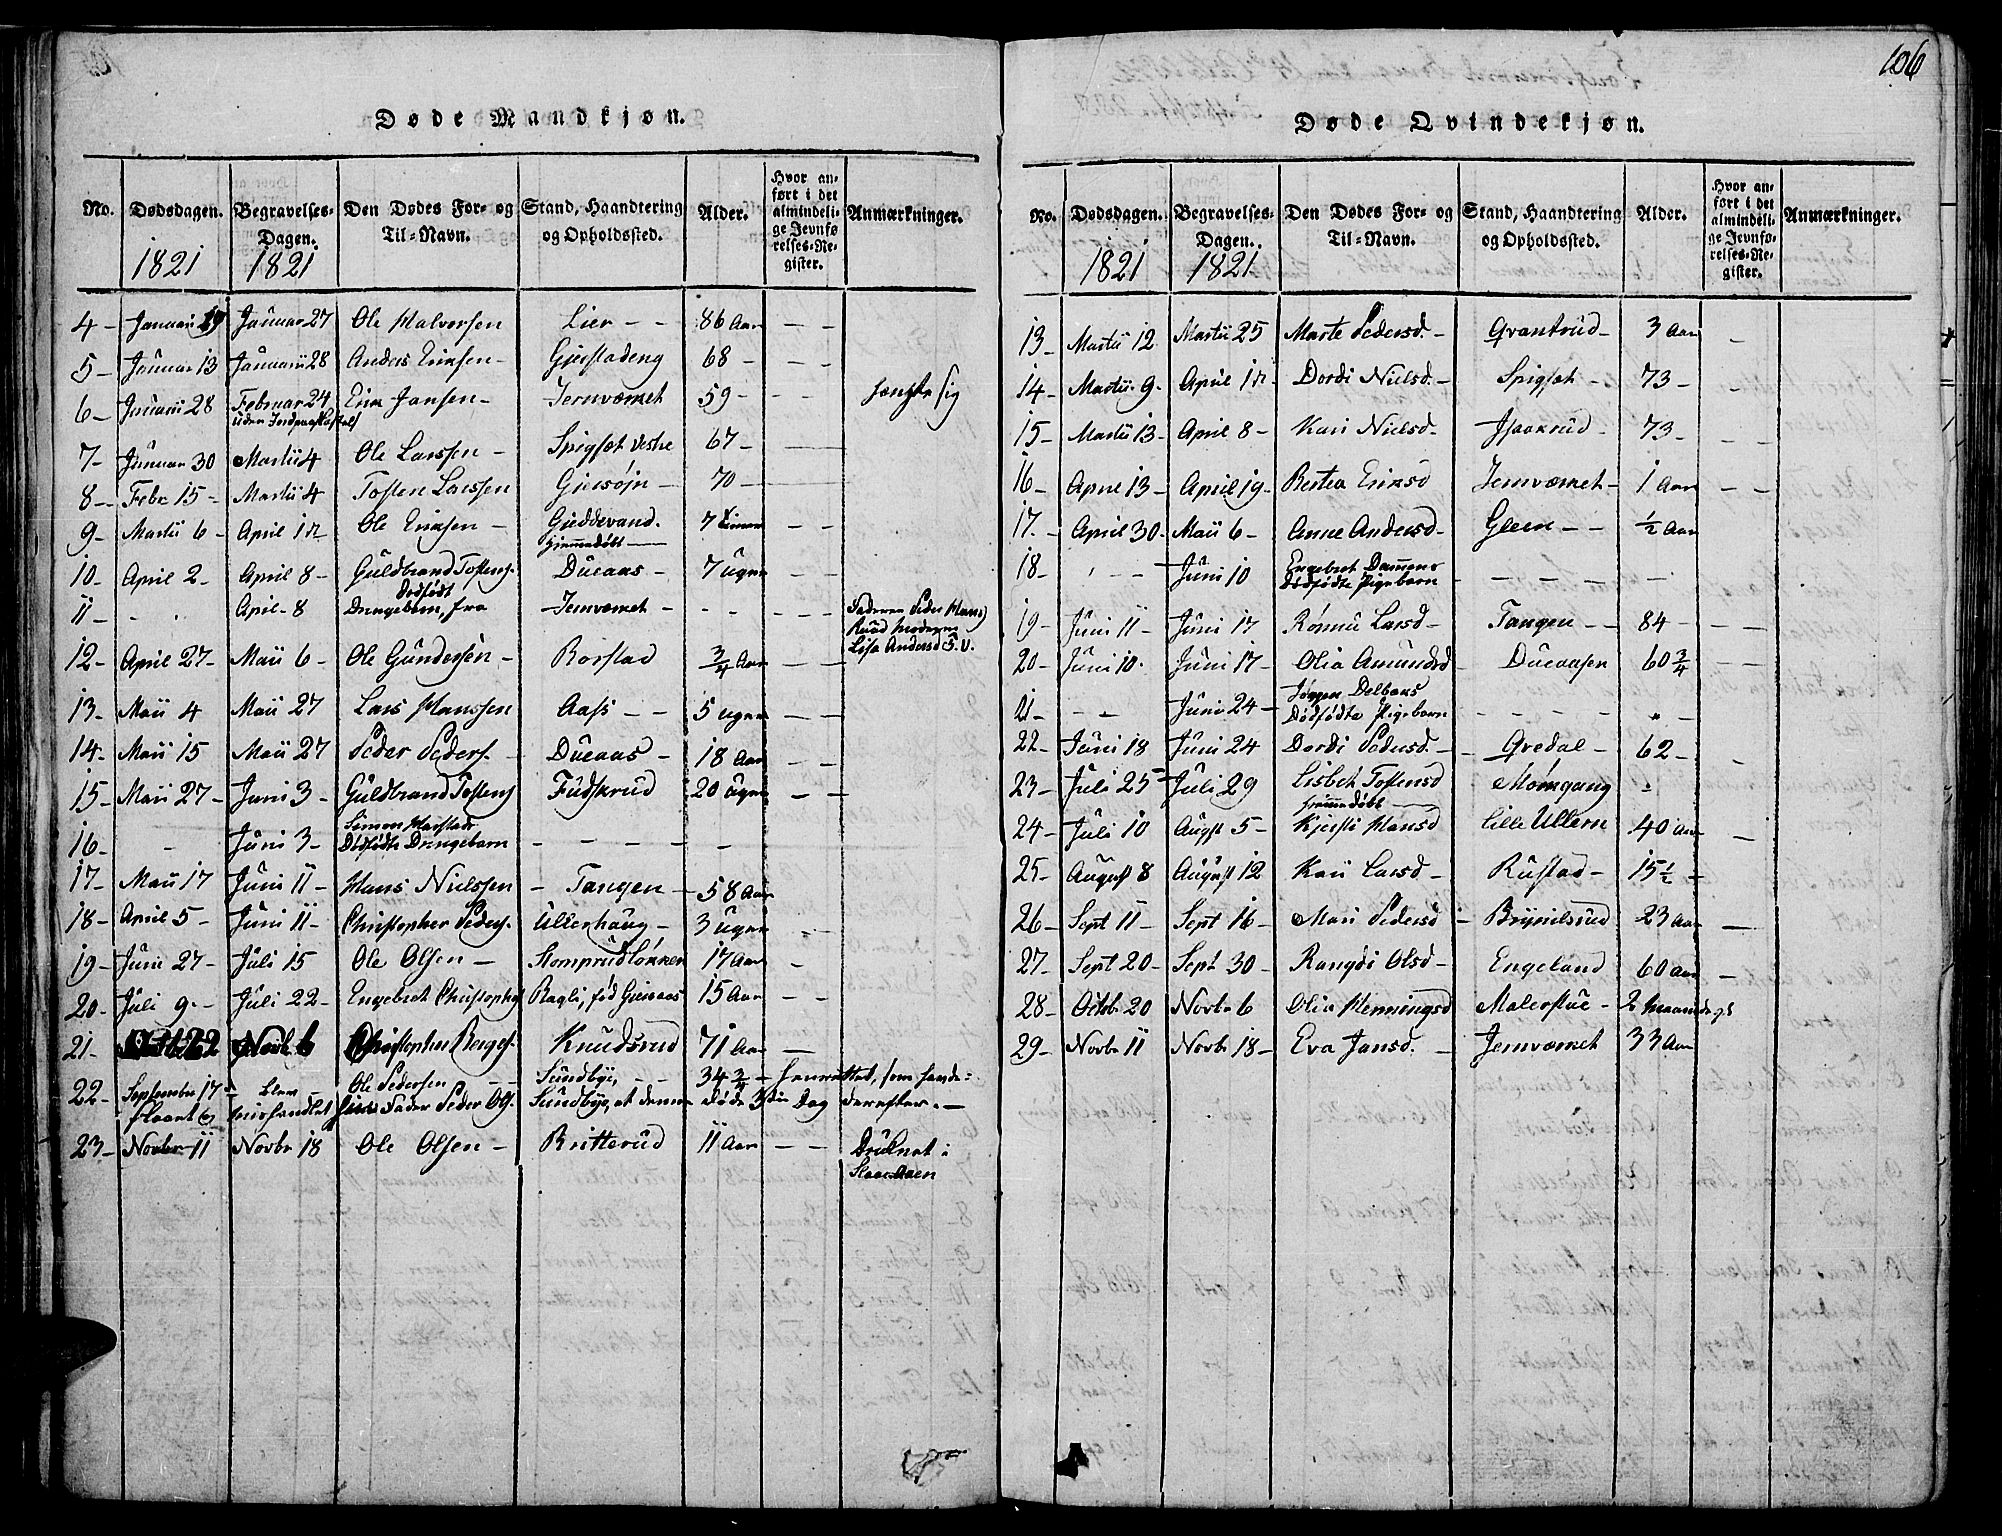 106
Døde Mandkjøn.
No. Dødsdagen. Begravelses-Dagen. Den Dødes For- og Til-Navn. Stand, Haandtering og Opholdssted. Alder. Hvor anført i det almindelige Jevnførelses-Register. Anmærkninger.
1821 1821
4 - Januari 19 Januar 27 Ole Halversen Lier - - 86 Aar - -
5 - Januar 13 Januarii 28 Anders Eriksen - Gierstadeng 68 - - -
6 - Januarii 28 Februar 24 Erik Jansen - Jernværket 59 - - - hængte sig
uden Jordpaakastelse
7 - Januar 30 Martii 4 Ole Larssen - Spigset vestre 67 -
8 - Febr 15 - Martii 4 Tosten Larssen Giersøjn - 70 -
9 - Martii 6 - April 12 Ole Eriksen - Gieddevand. 7 Timer - -
hjemmedøbt
10 - April 2 - April 8 - Guldbrand Tostens. Dueaas - 7 uger - -
11 - - April - 8 dødfødt Drengebarn, fra Jernværket - - - Faderen Peder Hans)
Ruud Moderen
Lisa Andersd S. V.
12 - April 27 - Maii 6 - Ole Gundersen - Rorstad 3/4 Aar - -
13 - Maii 4 Maii 27 Lars Hanssen Aass - - 5 uger - -
14 - Maii 15 Maii 27 Peder Peders. - Dueaas - 18 Aar
15 - Maii 27 - Juni 3 - Guldbrand Tostens Fudskrud 20 Uger - -
16 - - Juni 3 - Simon Harstads
Dødfødte Drengebarn - - - -
17 - Maii 17 Juni 11 - Hans Nielssen - Tangen - 58 Aar
18 - April 5 - Juni 11 - Christopher Peders. Ullerhaug - 3 uger
19 - Juni 27 - Juli 15 Ole Olsen - Stomprudløkken 17 Aar -
20 - Juli 9 - Juli 22 - Engebret Christophs Ragli, fød Gieraas 15 Aar - -
21 - Octb 22 Novb 6 Christopher Borges. Knudsrud 71 Aar -
22 - September 17 blev Ole Pedersen - - Sundbye, - - 34 3/4 - henrettet, som havde
slaaet og mishandlet sin Fader Peder Ols. Sundbye, at denne døde 3die Dag derefter. -
23 - Novbr 11 Novbr 18 Ole Olsen - Britterud 11 Aar - - Druknet i
Slaaraaen
Døde Qvindekjøn.
No. Dødsdagen. Begravelses-Dagen. Den Dødes For- og Til-Navn. Stand, Haandtering og Opholdssted. Alder. Hvor anført i det almindelige Jevnførelses-Register. Anmærkninger.
1821 1821
13 - Martii 12 Martii 25 Marte Pedersd. - Grantrud - 3 Aar -
14 - Martii 9 - April 12 - Dordi Nielsd. - Spigset - 73 - -
15 - Martii 13 - April 8 - Kari Nielsd - Isaakrud - 73 -
16 - April 13 - April 19 - Bertea Eriksd Jernværket - 1 Aar - -
17 - April 30 - Maii 6 - Anne Andersd - Gleen - - 1/2 Aar
18 - - - Juni 10 Engebret Dammens
Dødfødte Pigebarn - - - - -
19 - Juni 11 - Juni 17 Rønnu Larsd - Tangen - - 84 - - -
20 - Juni 10 - Juni 17 - Olia Amundsd - Dueaasen 60 3/4 - -
21 - - - Juni 24 - Jørgen Delbaks
Dødfødte Pigebarn - - - - -
22 - Juni 18 Juni 24 Dordi Pedersd - - Qvedal - 62 - -
23 - Juli 25 - Juli 29 Lisbet Tostensd Mørkgang
hjemmedøbt
24 - Juli 10 Augst 5 - Kjersti Hansd Lille Ullern 40 Aar -
25 - August 8 August 12 Kari Larsd - Rustad - 15 1/2 -
26 - Sept 11 - Sept 16 - Mari Pedersd - Brynilsrud 23 Aar -
27 - Sept 20 - Sept 30 - Rangdi Olsd - Engeland 60 Aar -
28 - Octobr 20 Novbr 6 Olia Henningsd Malerstue - 2 Maaneder
29 - Novbr 11 Novbr 18 - Eva Jansd. - Jernværket 33 Aar